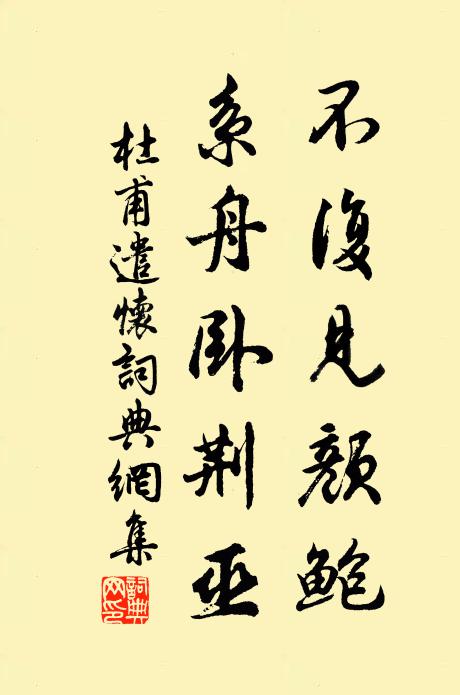 不復見顏鮑
系舟卧荆巫
杜甫遣懷詞典網集
詞典網印